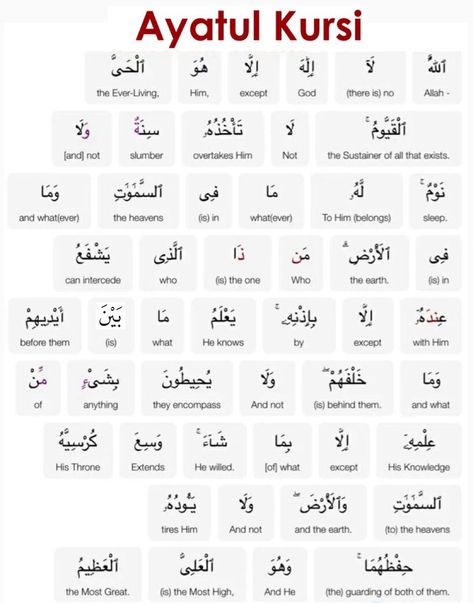 Ayatul Kursi
ٱللَّهُ لَآ إِلَٰهَ إِلَّا هُوَ ٱلْحَىُّ
Allah - (there is) no God except Him, the Ever-Living,
ٱلْقَيُّومُ ۚ لَا تَأْخُذُهُۥ سِنَةٌۭ وَلَا
the Sustainer of all that exists. Not overtakes Him slumber [and] not
نَوْمٌۭ ۚ لَّهُۥ مَا فِى ٱلسَّمَٰوَٰتِ وَمَا
sleep. To Him (belongs) what(ever) (is) in the heavens and what(ever)
فِى ٱلْأَرْضِ ۗ مَن ذَا ٱلَّذِى يَشْفَعُ
(is) in the earth. Who (is) the one who can intercede
عِندَهُۥٓ إِلَّا بِإِذْنِهِۦ ۚ يَعْلَمُ مَا بَيْنَ أَيْدِيهِمْ
with Him except by He knows what (is) before them
وَمَا خَلْفَهُمْ ۖ وَلَا يُحِيطُونَ بِشَىْءٍۢ مِّنْ
and what (is) behind them. And not they encompass anything of
عِلْمِهِۦٓ إِلَّا بِمَا شَآءَ ۚ وَسِعَ كُرْسِيُّهُ
His Knowledge except [of] what He willed. Extends His Throne
ٱلسَّمَٰوَٰتِ وَٱلْأَرْضَ ۖ وَلَا يَـُٔودُهُۥ
(to) the heavens and the earth. And not tires Him
حِفْظُهُمَا ۚ وَهُوَ ٱلْعَلِىُّ ٱلْعَظِيمُ
(the) guarding of both of them. And He (is) the Most High, the Most Great.